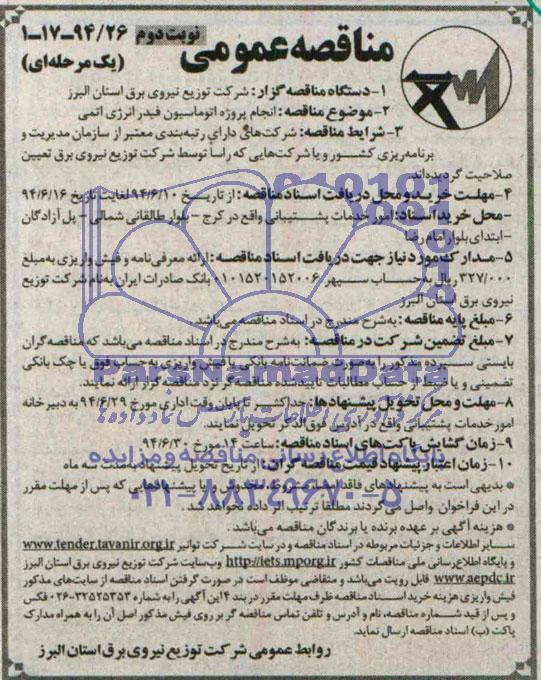 مناقصه عمومی
نوبت دوم ۹۴/۲۶-۱۷-۱
(یک مرحله‌ای)
۱-دستگاه مناقصه گزار: شرکت توزیع نیروی برق استان البرز
۲-موضوع مناقصه: انجام پروژه اتوماسیون فیدر انرژی اتمی
۳-شرایط مناقصه: شرکت‌های دارای رتبه‌بندی معتبر از سازمان مدیریت و
برنامه‌ریزی کشور و یا شرکت‌هایی که راساً توسط شرکت توزیع نیروی برق تعیین
صلاحیت گردیده‌اند.
۴-مهلت خرید و محل دریافت اسناد مناقصه: از تاریخ ۹۴/۶/۱۰ لغایت تاریخ ۹۴/۶/۱۶
-محل خرید اسناد: امور خدمات پشتیبانی واقع در کرج - بلوار طالقانی شمالی - پل آزادگان
-ابتدای بلوار امام رضا
۵-مدارک مورد نیاز جهت دریافت اسناد مناقصه: ارائه معرفی‌نامه و فیش واریزی به مبلغ
۳۲۷/۰۰۰ ریال به حساب سپهر ۰۱۰۱۵۲۰۱۵۲۰۰۶ بانک صادرات ایران به نام شرکت توزیع
نیروی برق استان البرز
۶-مبلغ پایه مناقصه: به شرح مندرج در اسناد مناقصه می‌باشد.
۷-مبلغ تضمین شرکت در مناقصه: به شرح مندرج در اسناد مناقصه می‌باشد که مناقصه‌گران
بایستی سپرده مذکور را به صورت ضمانت‌نامه بانکی یا فیش واریزی به حساب فوق یا چک بانکی
تضمینی و یا کسر از حساب مطالبات تایید شده مناقصه گر نزد مناقصه گزار ارائه نمایند.
۸-مهلت و محل تحویل پیشنهادها: حداکثر تا پایان وقت اداری مورخ ۹۴/۶/۲۹ به دبیرخانه
امور خدمات پشتیبانی واقع در آدرس فوق‌الذکر تحویل نمایند.
۹-زمان گشایش پاکت‌های اسناد مناقصه: ساعت ۱۴ مورخ ۹۴/۶/۳۰
۱۰-زمان اعتبار پیشنهاد قیمت مناقصه گران: از تاریخ تحویل پیشنهاد به مدت سه ماه
* بدیهی است به پیشنهادهای فاقد امضاء، مشروط، مخدوش و یا پیشنهادهایی که پس از مهلت مقرر
در این فراخوان واصل می‌گردند مطلقا ترتیب اثر داده نخواهد شد.
* هزینه آگهی بر عهده برنده یا برندگان مناقصه می‌باشد.
سایر اطلاعات و جزئیات مربوطه در اسناد مناقصه و در سایت شرکت توانیر www.tender.tavanir.org.ir
و پایگاه اطلاع‌رسانی ملی مناقصات کشور http://iets.mporg.ir وب‌سایت شرکت توزیع نیروی برق استان البرز
www.aepdc.ir قابل رویت می‌باشد و متقاضی موظف است در صورت گرفتن اسناد مناقصه از سایت‌های مذکور
فیش واریزی هزینه خرید اسناد مناقصه ظرف مهلت مقرر در بند ۴ این آگهی را به شماره ۳۲۵۲۵۳۵۳-۰۲۶ فکس
و پس از قید شماره مناقصه، نام و آدرس و تلفن تماس مناقصه گر بر روی فیش مذکور اصل آن را به همراه مدارک
پاکت (ب) اسناد مناقصه ارسال نماید.
روابط عمومی شرکت توزیع نیروی برق استان البرز
ParsNamadData
مرکز فرآوری اطلاعات پارس نماد داده‌ها
پایگاه اطلاع رسانی مناقصه و مزایده
۰۲۱-۸۸۳۴۹۶۷۰-۵